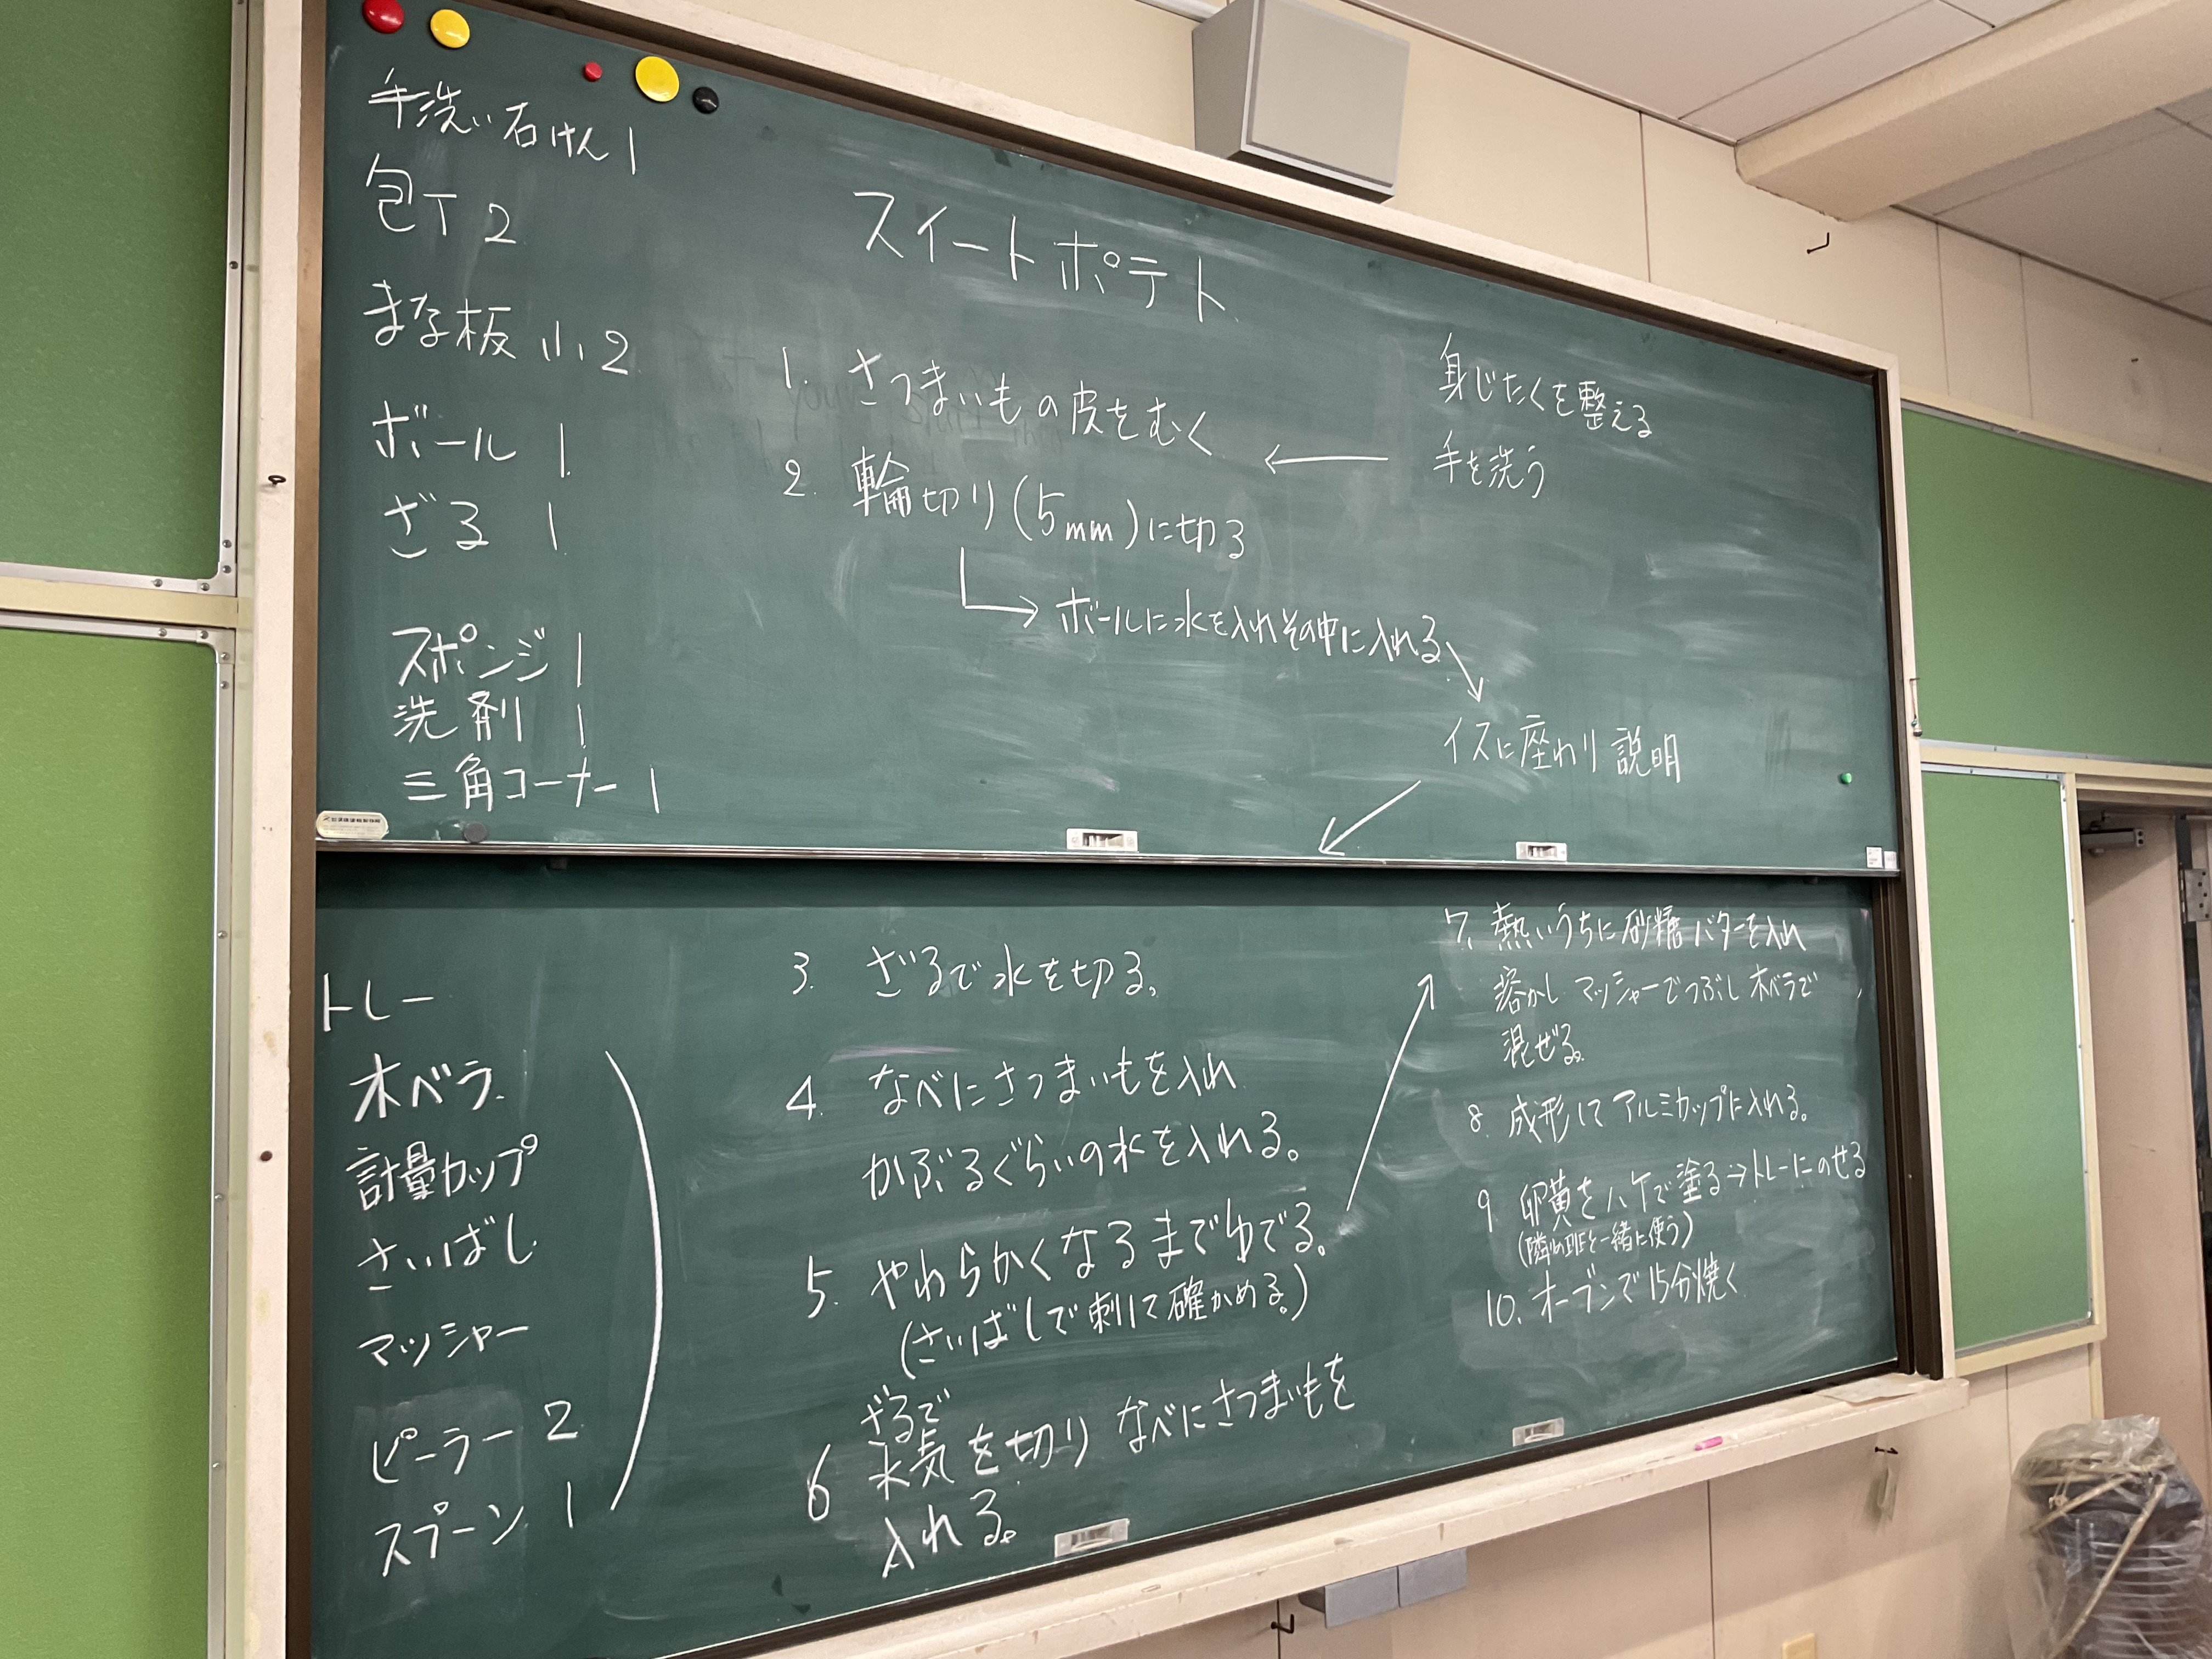 手洗い石けん 1
包丁 2
まな板 小 2
ボール 1
ざる 1
スポンジ 1
洗剤 1
三角コーナー 1
スイートポテト
1. さつまいもの皮をむく
2. 輪切り(5mm)に切る
ボールに水を入れその中に入れる
身じたくを整える
手を洗う
イスに座わり 説明
トレー
木ベラ
計量カップ
さいばし
マッシャー
ピーラー 2
スプーン 1
3. ざるで水を切る。
4. なべにさつまいもを入れ
かぶるぐらいの水を入れる。
5. やわらかくなるまでゆでる。
(さいばしで刺して確かめる。)
ざるで
6 水気を切り なべにさつまいもを
入れる。
7. 熱いうちに砂糖 バターを入れ
溶かし マッシャーでつぶし 木ベラで
混ぜる。
8. 成形して アルミカップに入れる。
9. 卵黄をハケで塗る→トレーにのせる
(隣の班と一緒に使う)
10. オーブンで15分焼く